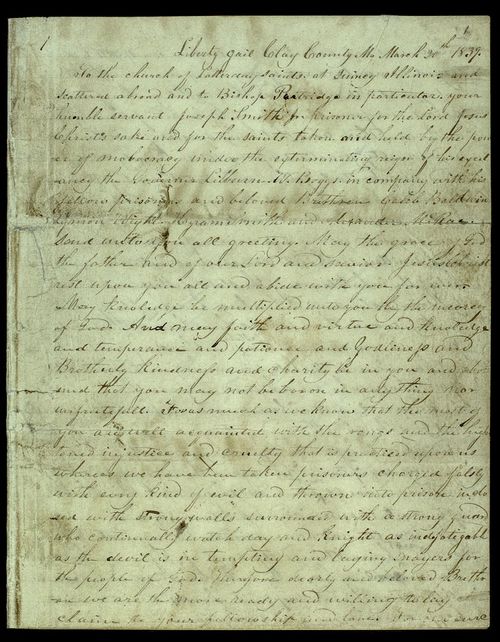 1
Liberty jail Clay County Mo March 20th 1839.
To the church of Latterday saints at Quincy Illinois and
scattered abroad and to Bishop Partridge in particular. your
humble servant Joseph Smith Jr prisoner for the Lord Jesus
Christ's sake and for the saints taken and held by the pow
er of mobocracy under the exterminating reign of his excel
ancy the Governer Lilburn W. Boggs in company with his
fellow prisoners and beloved Brethren Caleb Baldwin
Lyman Wight. Hyrum Smith and Alexander McRae.
Send unto you all greeting. May the grace of God
the father and of our Lord and savior Jesus Christ
rest upon you all and abide with you for ever.
May knoledge be multiplied unto you by the mercy
of God. And may faith and virtue and knowledge
and temperance and patience and Godliness and
Brotherly kindness and charity be in you and abo
und that you may not be baron in anything nor
unfrutefull. it as much as we know that the most of
you are well acquainted with the rongs and the high
toned injustice and cruelty that is practiced upon us
whereas we have been taken prisoners charged falsly
with evry kind of evil and thrown into prison inclo
sed with strong walls surrounded with a strong guard
who continually watch day and knight as indefatigable
as the devil is in tempting and laying snayers for
the people of God. Therefore dearly and beloved Brethr
en we are the more ready and willing to lay
claim to your fellowship and love. For our